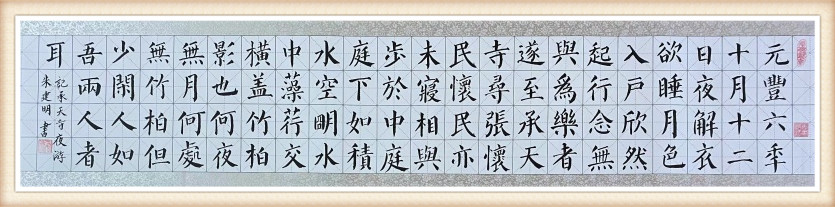 元豐六年
十月十二
日夜解衣
欲睡月色
入戶欣然
起行念無
與爲樂者
遂至承天
寺尋張懷
民懷民亦
未寢相與
步於中庭
庭下如積
水空明水
中藻荇交
橫盖竹柏
影也何夜
無月何處
無竹柏但
少閑人如
吾兩人者
耳
記承天寺夜游
朱建明書